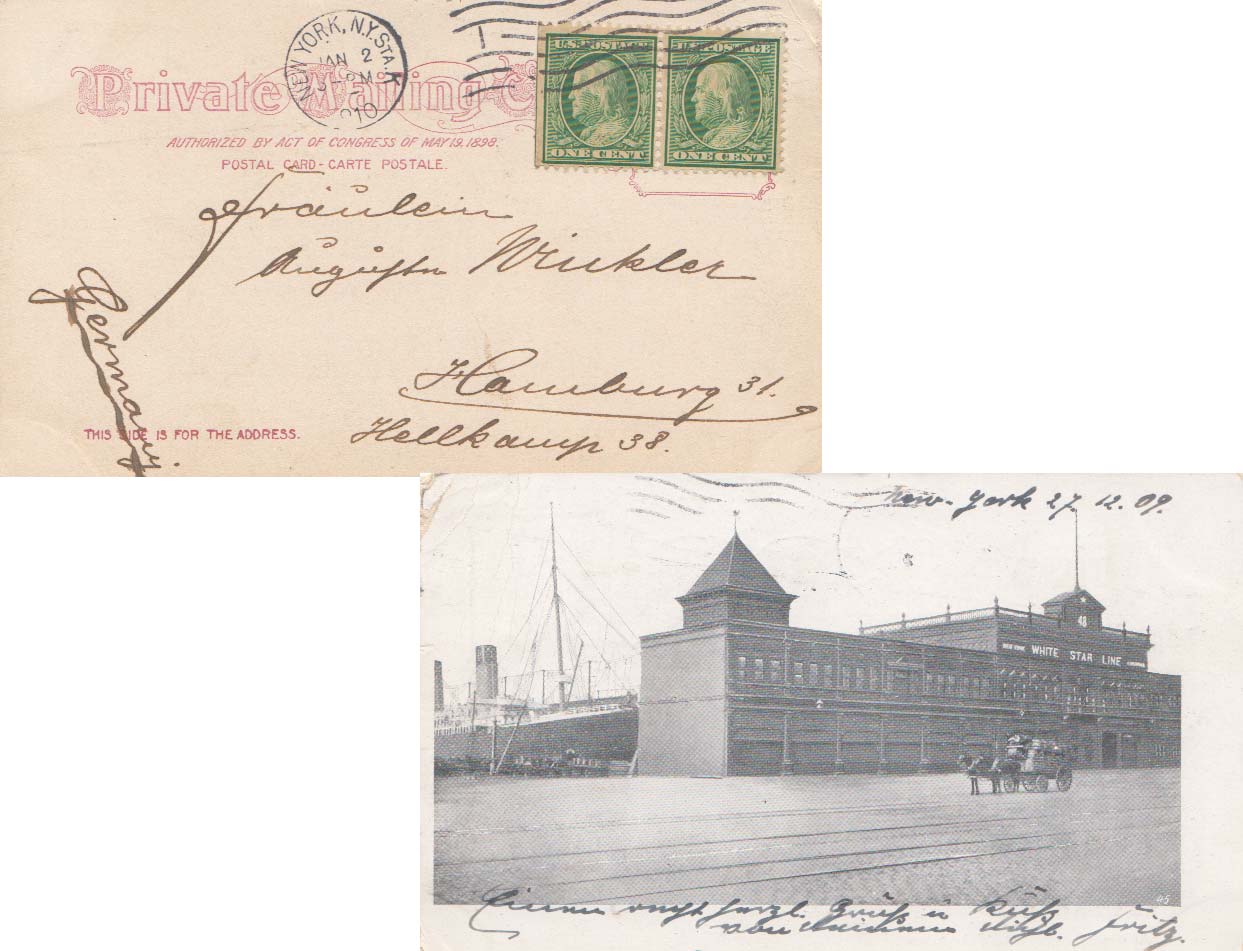 NEW YORK, N.Y. STA. K
JAN 2
PM
1910
U.S. POSTAGE U.S. POSTAGE
ONE CENT ONE CENT
Private Mailing
AUTHORIZED BY ACT OF CONGRESS OF MAY 19, 1898.
POSTAL CARD - CARTE POSTALE.
Fräulein
Augusta Winkler
Hamburg 31.
Hellkamp 38.
Germany.
THIS SIDE IS FOR THE ADDRESS.
New-York 27. 12. 09.
48
NEW YORK WHITE STAR LINE LIVERPOOL
45
Einen recht herzl. Gruß u Kuß
von Deinem Fritz.